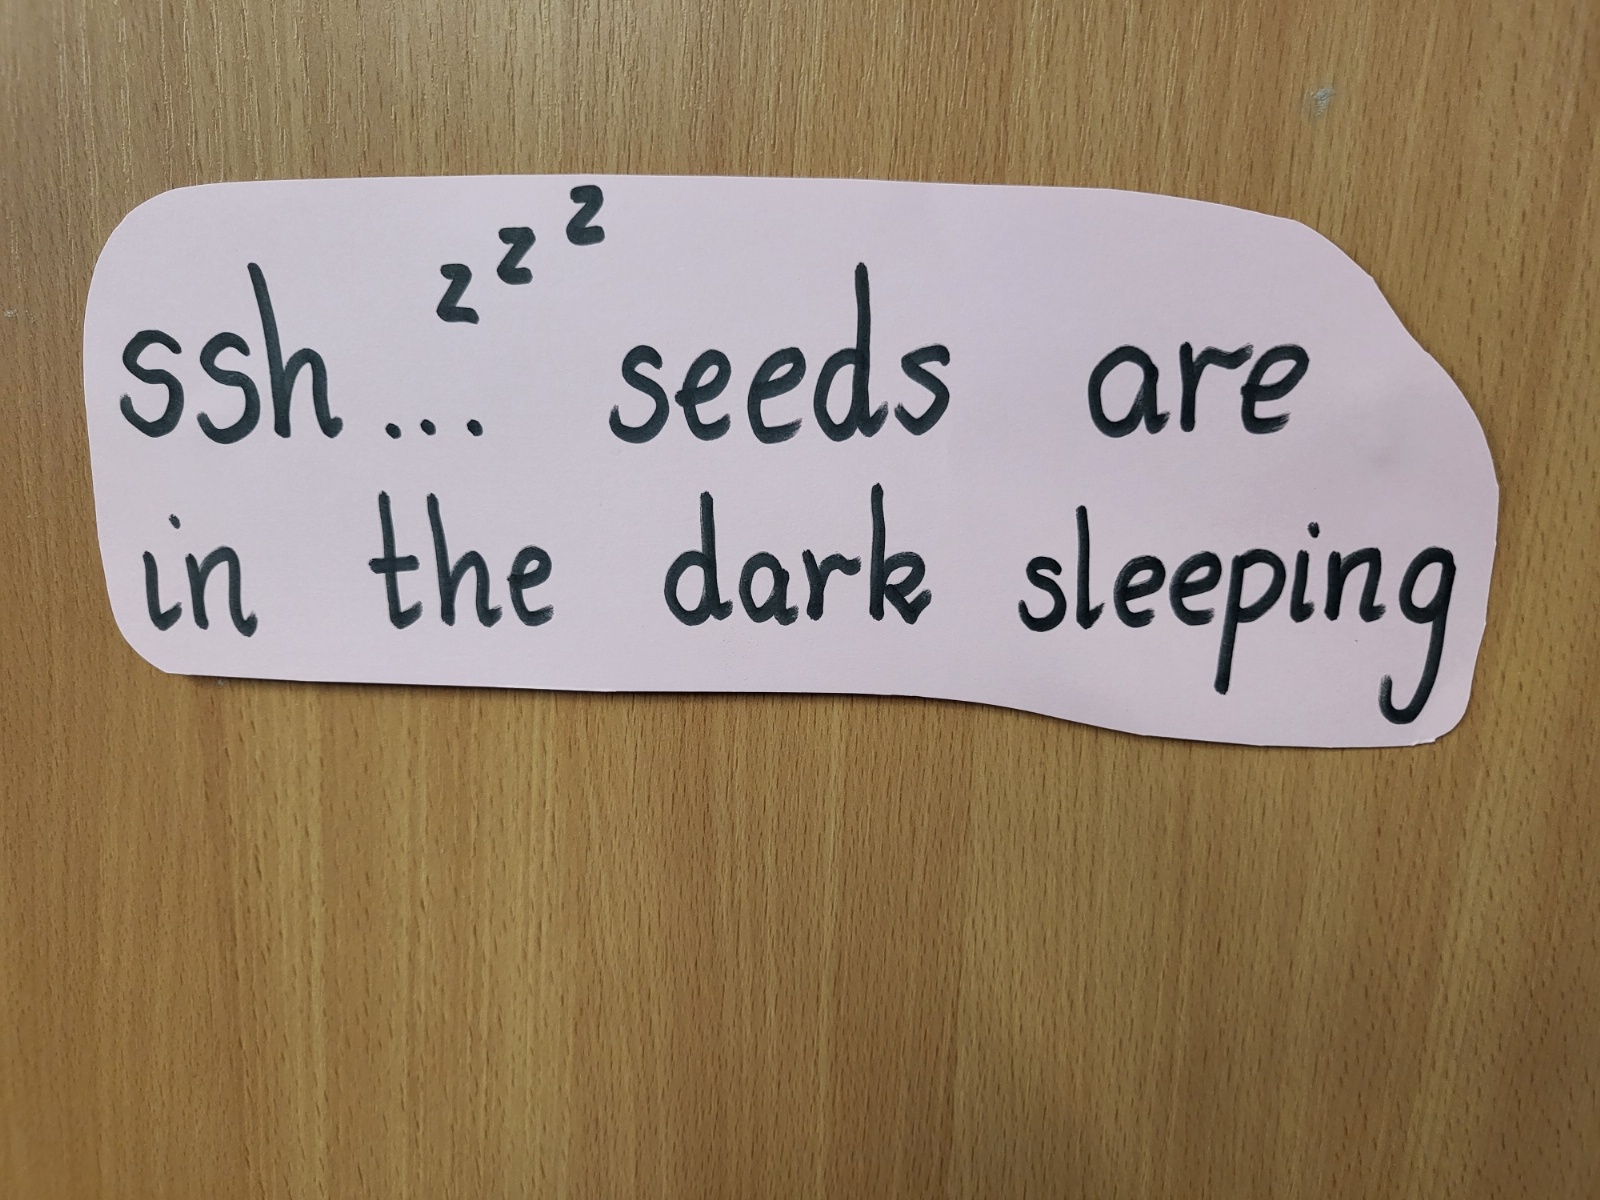 zzz
ssh... seeds are
in the dark sleeping